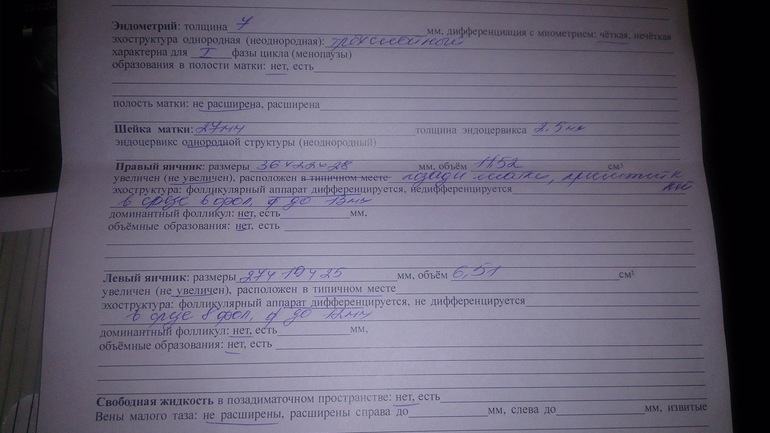 Эндометрий: толщина 7 мм, дифференциация с миометрием: чёткая, нечёткая
эхоструктура однородная (неоднородная): трёхслойный
характерна для I фазы цикла (менопаузы)
образования в полости матки: нет, есть
полость матки: не расширена, расширена
Шейка матки: 27мм толщина эндоцервикса 2.5мм
эндоцервикс однородной структуры (неоднородный)
Правый яичник: размеры 36×22×28 мм, объём 11.52 см³
увеличен (не увеличен), расположен в типичном месте позади матки, прилежит к
ней
эхоструктура: фолликулярный аппарат дифференцируется, недифференцируется
в срезе 6 фол, d до 13мм
доминантный фолликул: нет, есть мм,
объёмные образования: нет, есть
Левый яичник: размеры 27×19×25 мм, объём 6,51 см³
увеличен (не увеличен), расположен в типичном месте
эхоструктура: фолликулярный аппарат дифференцируется, не дифференцируется
в срезе 8 фол, d до 12мм
доминантный фолликул: нет, есть мм,
объёмные образования: нет, есть
Свободная жидкость в позадиматочном пространстве: нет, есть
Вены малого таза: не расширены, расширены справа до мм, слева до мм, извитые